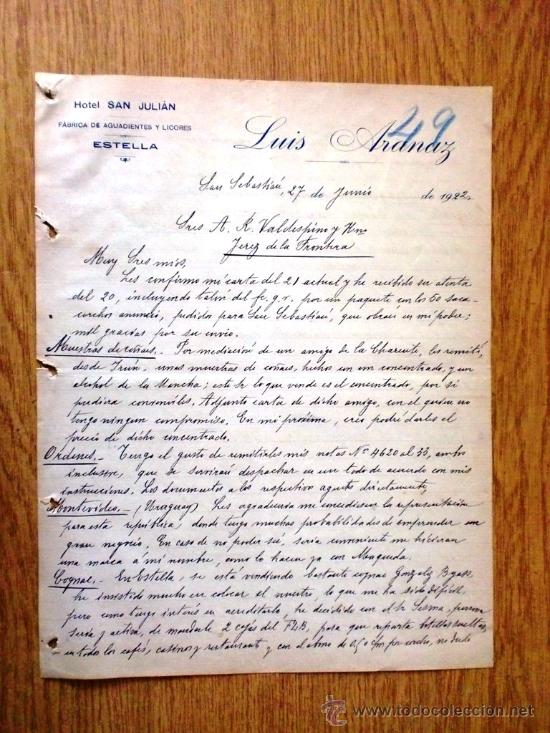 Hotel SAN JULIÁN
FÁBRICA DE AGUADIENTES Y LICORES
ESTELLA
Luis Aranaz
49
San Sebastián, 27 de Junio de 1922
Sres A. R. Valdespino y Hno
Jerez de la Frontera
Muy Sres mios,
Les confirmo mi carta del 21 actual y he recibido su atenta
del 20, incluyendo talon del fc. g.v. por un paquete con los 50 saca-
corchos anuncio, pedidos para San Sebastiaú, que obran en mi poder;
mil gracias por su envio.
Muestras de coñac.- Por mediación de un amigo de la Charente, les remití,
desde Irun, unas muestras de coñac, hechos con un concentrado, y un
alcohol de la Mancha; este Sr lo que vende es el concentrado, por si
pudiera convenirles. Adjunto carta de dicho amigo, con el quien no
tengo ningun compromiso. En mi proxima, creo podré darles el
precio de dicho concentrado.
Ordenes.- Tengo el gusto de remitirles mis notas Nº 4620 al 33, ambos
inclusive, que se serviran despachar en un todo de acuerdo con mis
instrucciones. Los documentos a los respectivos agentes directamente,
Montevideo.- (Uruguay) Les agradeceria me concedieran la representación
para esta republica, donde tengo muchas probabilidades de emprender un
gran negocio. En caso de no poder ser, seria conveniente me hicieran
una marca á mi nombre, como lo hacen ya con
Cognac.- En Estella, se esta vendiendo bastante cognac Gonzalez Byass,
he insistido mucho en colocar el nuestro, lo que me ha sido dificil,
pero como tengo interés en acreditarlo, he decidido con el Sr Lerma, persona
seria y activa, de mandarle 2 cajas del para que reparta botellas sueltas
en todos los cafés, casinos y restaurant y con el abono de
todocoleccion.net
www.todocoleccion.net